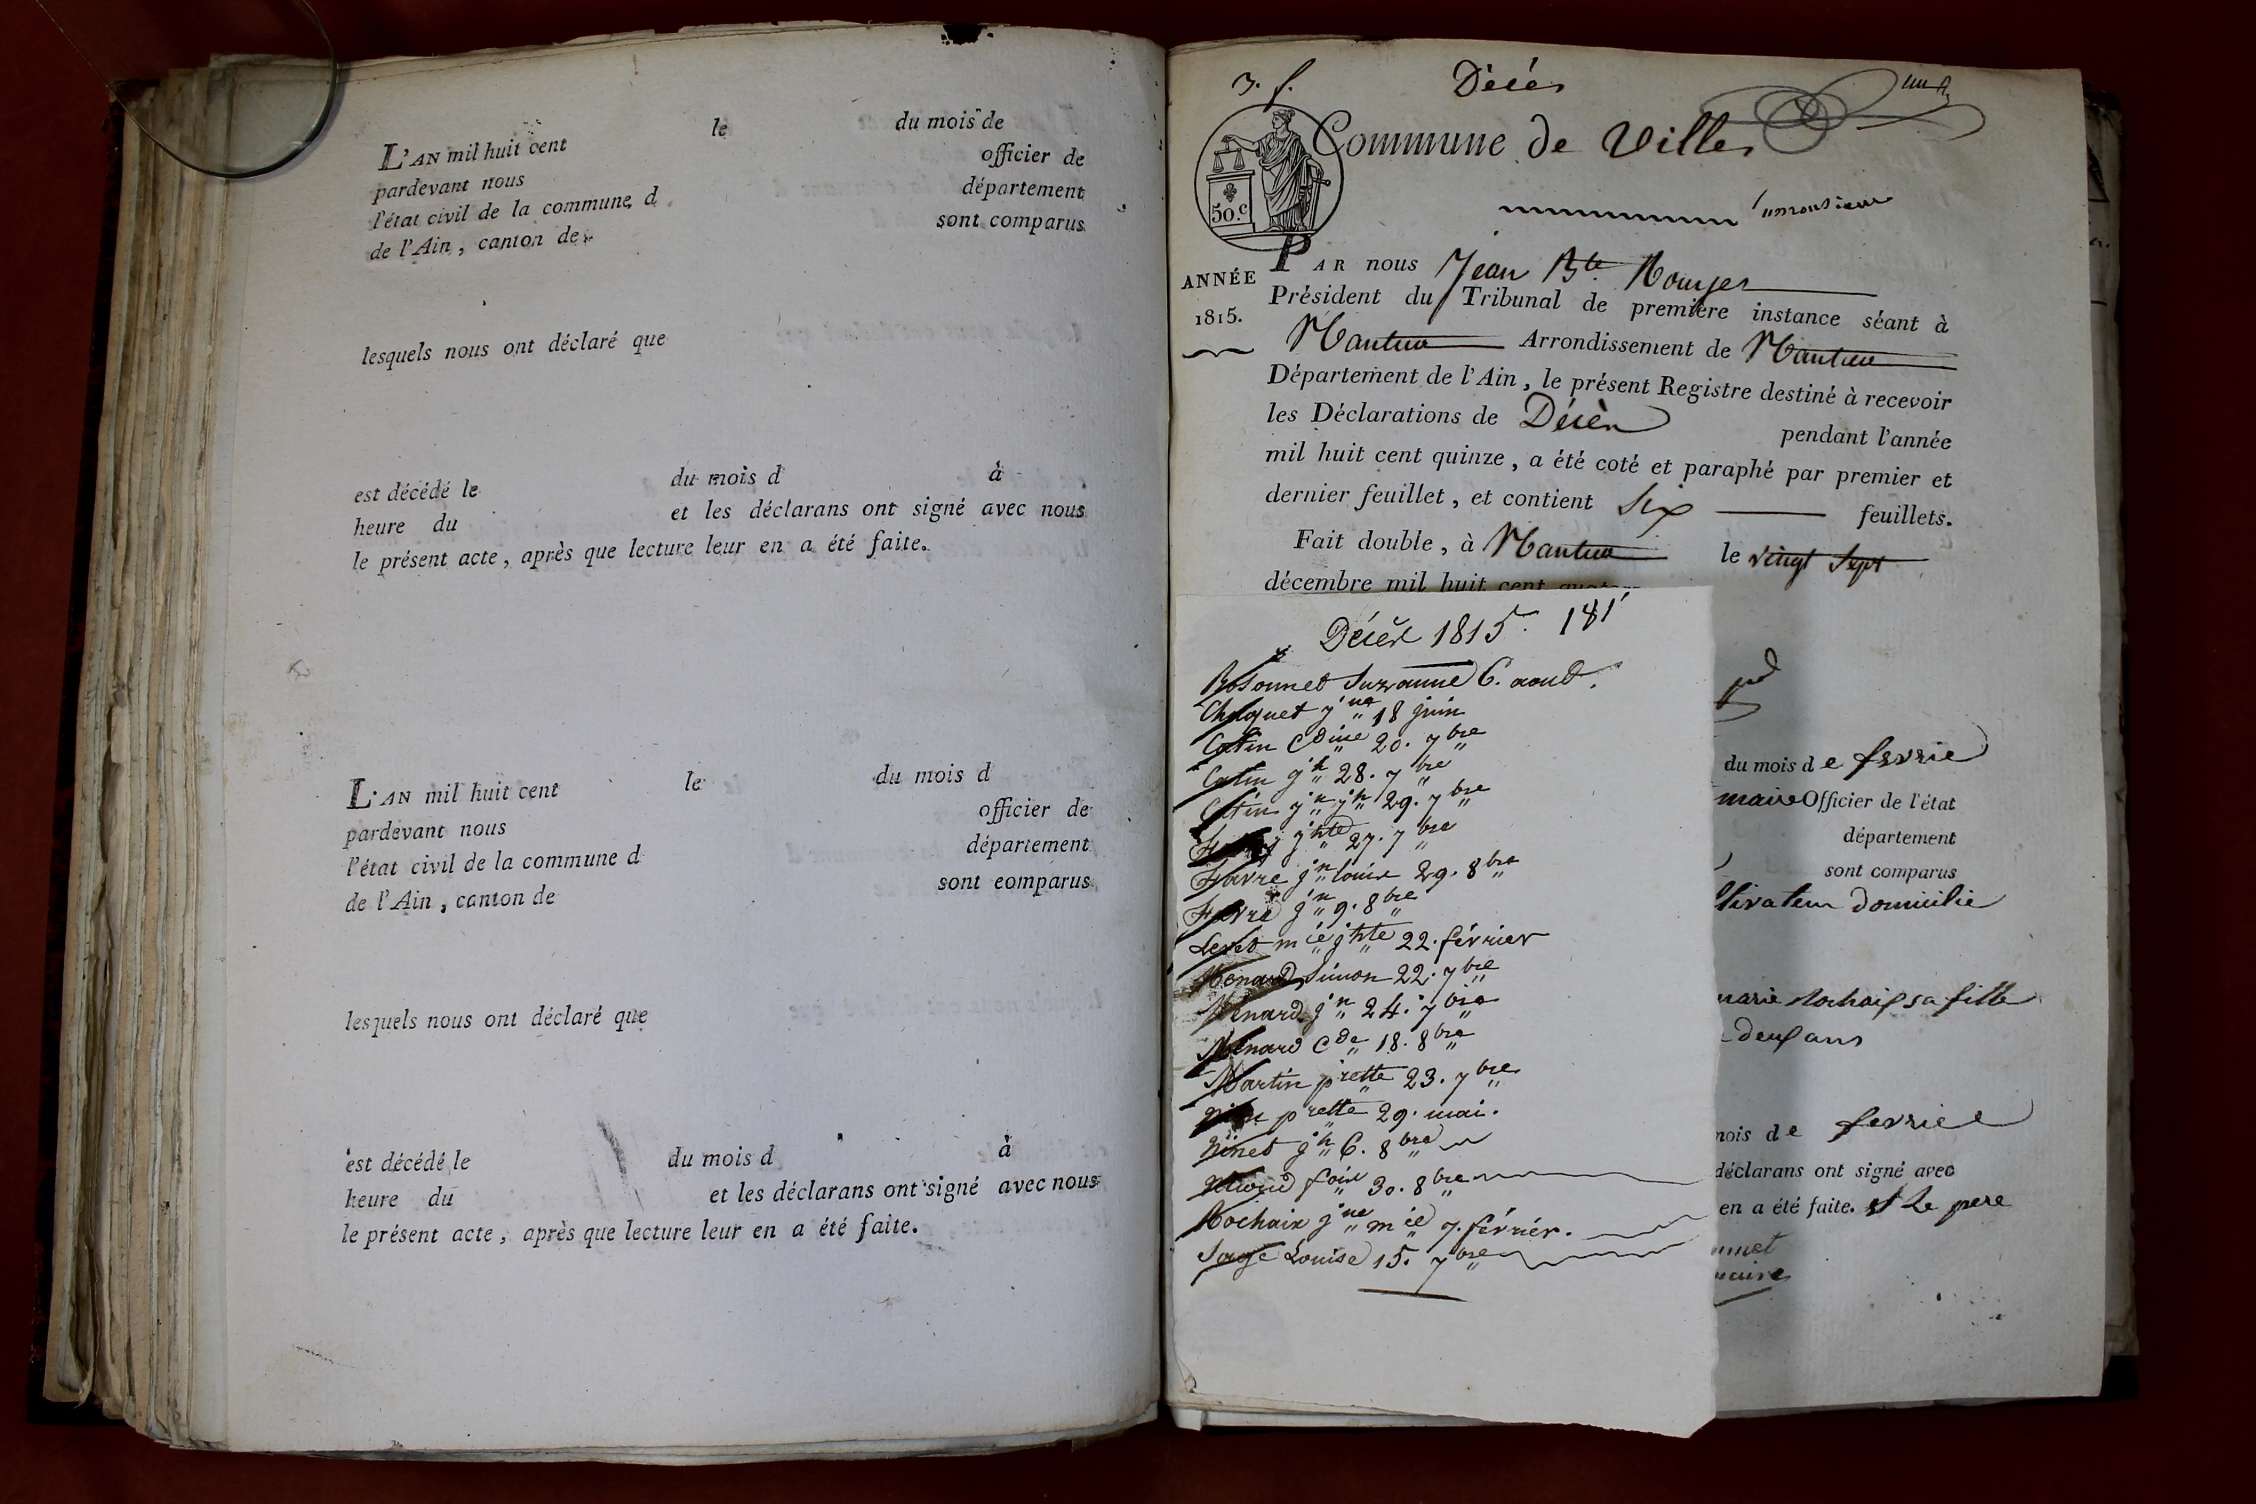 L'AN mil huit cent le du mois de
pardevant nous officier de
l'état civil de la commune d département
de l'Ain, canton de sont comparus
lesquels nous ont déclaré que
est décédé le du mois d à
heure du et les déclarans ont signé avec nous
le présent acte, après que lecture leur en a été faite.
L'AN mil huit cent le du mois d
pardevant nous officier de
l'état civil de la commune d département
de l'Ain, canton de sont comparus
lesquels nous ont déclaré que
est décédé le du mois d à
heure du et les déclarans ont signé avec nous
le présent acte, après que lecture leur en a été faite.
3. f. Décés
Commune de Villes
50.c
PAR nous Jean Bte
ANNÉE
1815.
Président du Tribunal de première instance séant à
Nantua Arrondissement de Nantua
Département de l'Ain, le présent Registre destiné à recevoir
les Déclarations de Décès pendant l'année
mil huit cent quinze, a été coté et paraphé par premier et
dernier feuillet, et contient Six feuillets.
Fait double, à Nantua le vingt Sept
décembre mil huit cent
Décès 1815. 181
Bosonnet Suzanne 6. aout.
18 juin
Catin Cdine 20. 7bre
Catin jh 28. 7bre
Catin jn jh 29. 7bre
jhte 27. 7bre
Favre jn louis 29. 8bre
Favre jn 9. 8bre
Levet mie jhte 22. février
Menard Simon 22. 7bre
Menard jn 24. 7bre
Menard Cde 18. 8bre
Martin prette 23. 7bre
prette 29. mai.
Ninet jh 6. 8bre
fois 30. 8bre
Rochaix jne mie 7. février.
Sage Louise 15. 7bre
du mois de fevrie
maire Officier de l'état
département
sont comparus
ltivateur domicilie
marie Rochaix sa fille
deux ans
mois de fevrier
déclarans ont signé avec
en a été faite. et le pere
maire